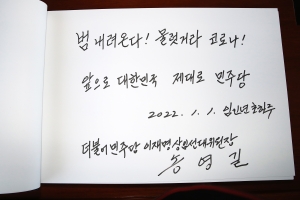 범 내려온다! 물럿거라 코로나!
앞으로 대한민국 제대로 민주당
2022. 1. 1. 임인년 호랑주
더불어민주당 이재명 상임선대위원장
송영길